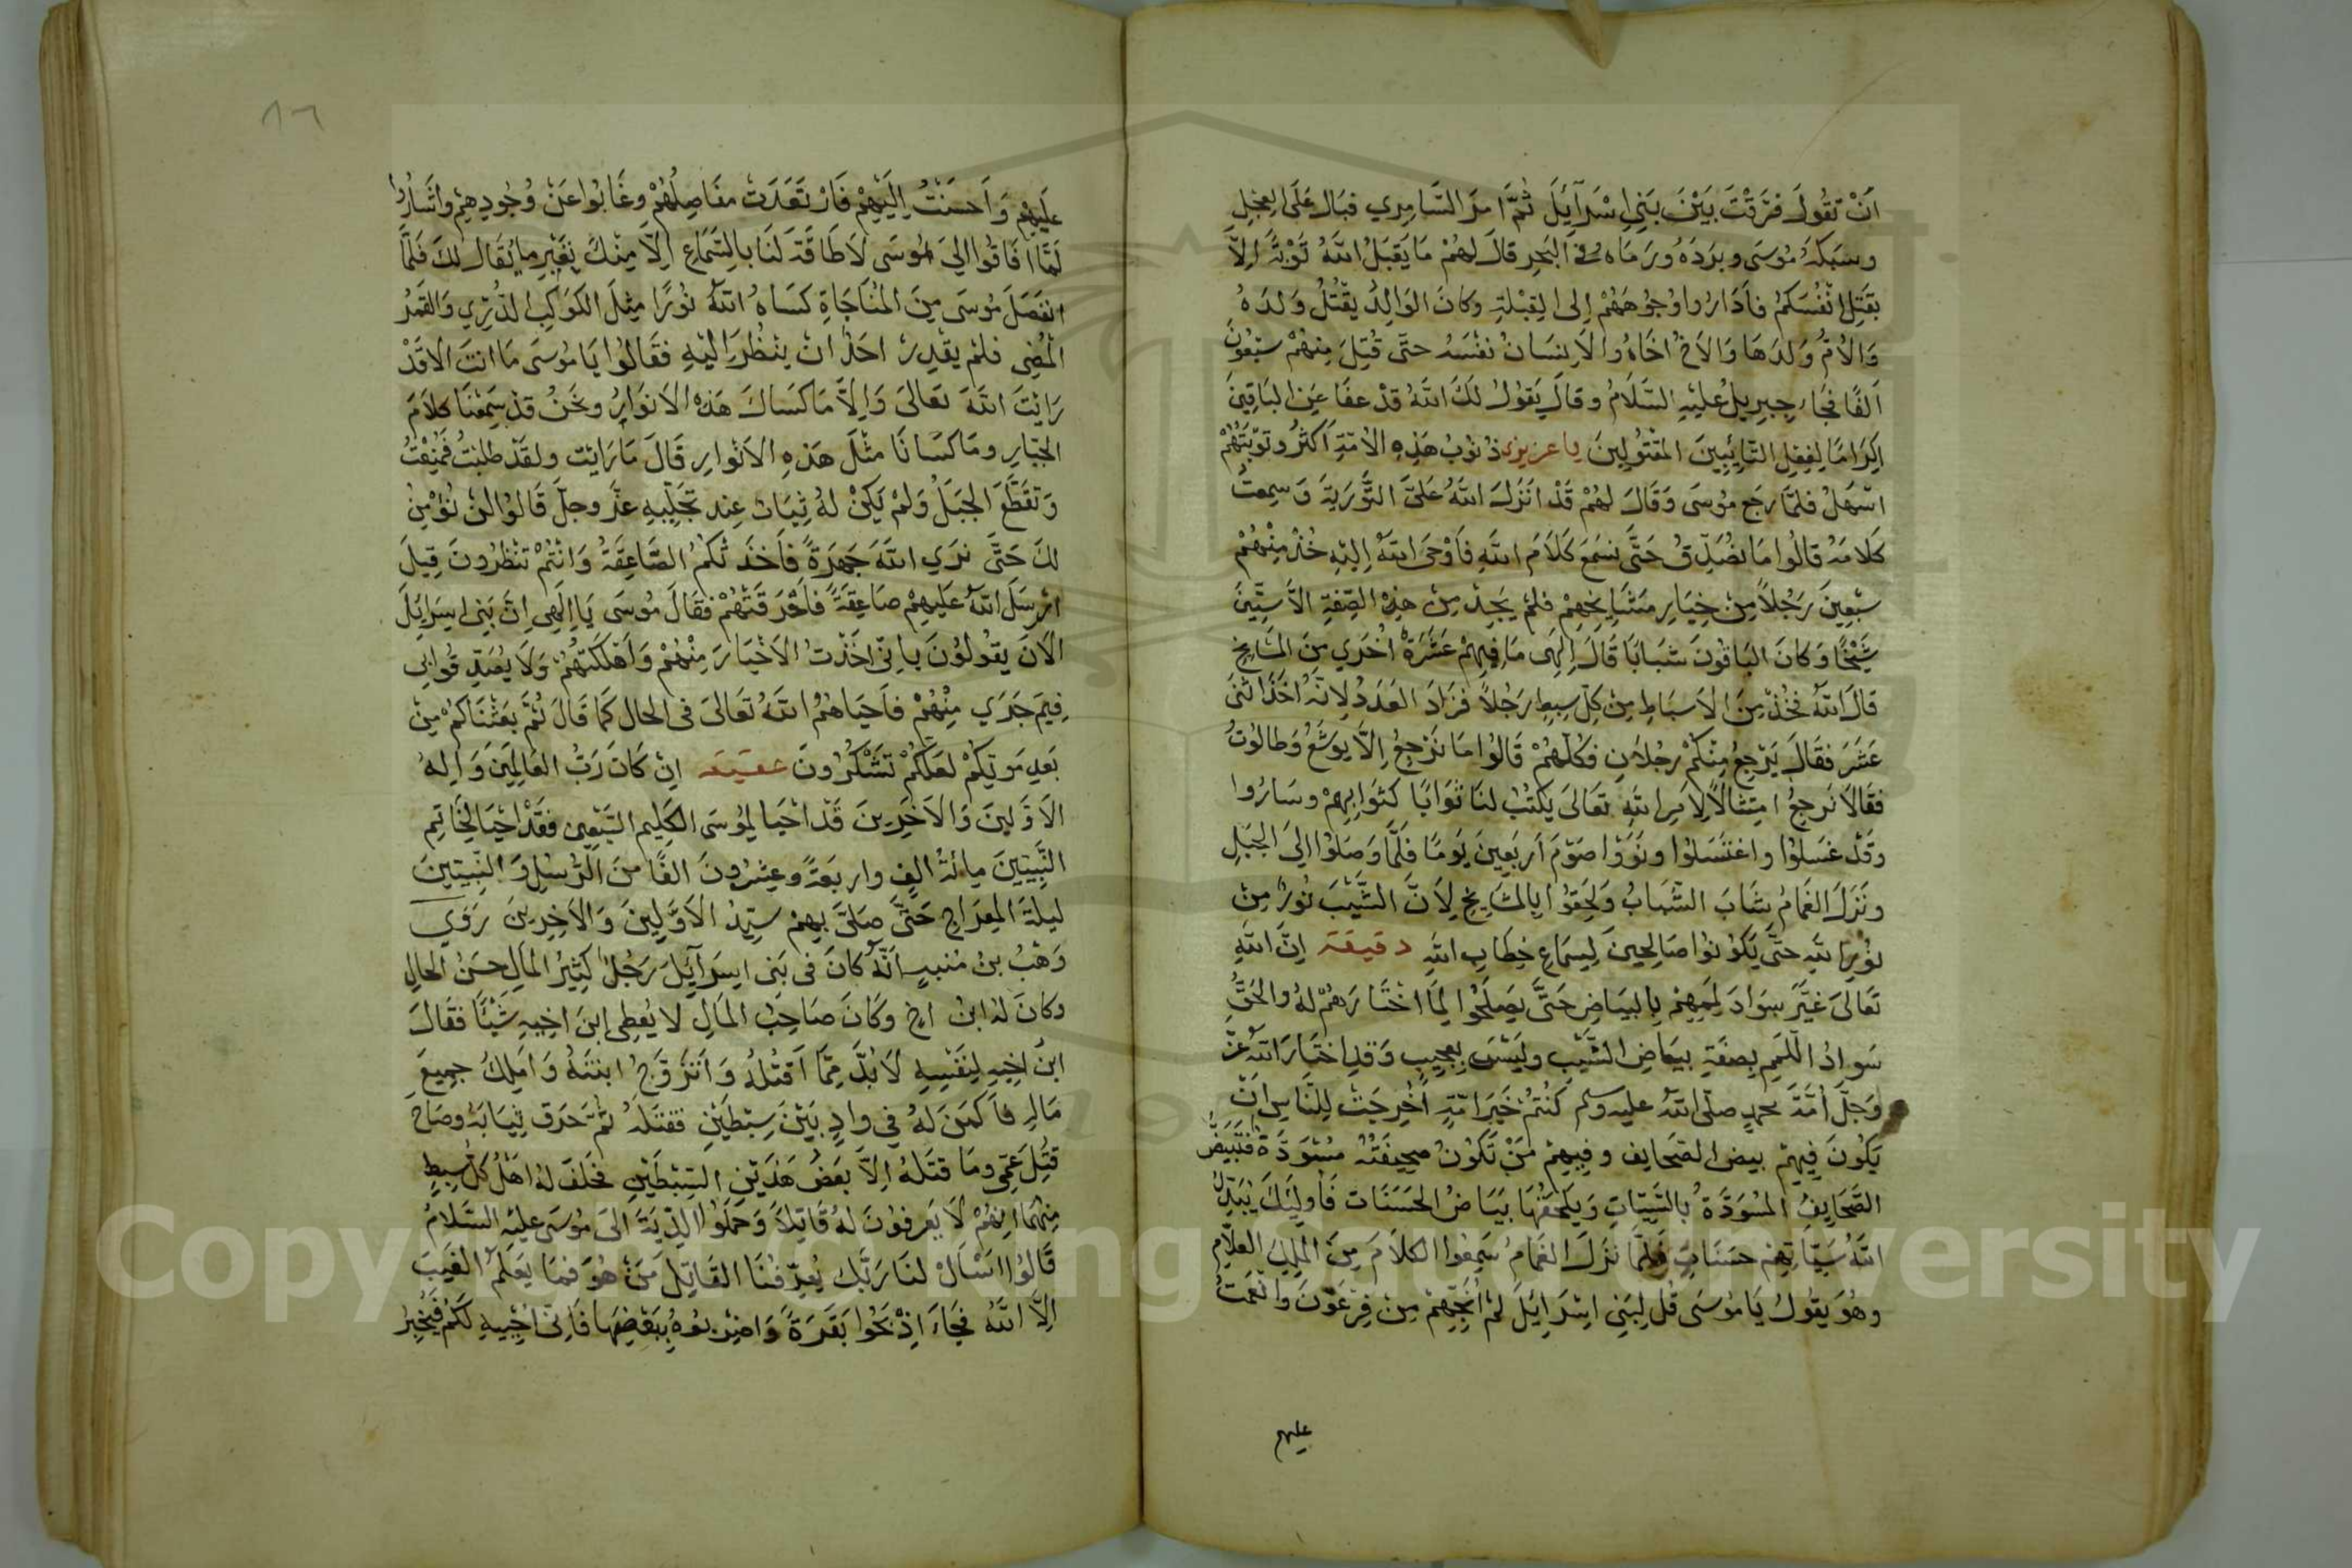 اَنْ تَقُولَ فَرَّقْتَ بَيْنَ بَنِي اِسْرَآئِيلَ ثُمَّ اَمَرَ السَّامِرِي فبَال عَلَى العِجْلِ
وسَبَكَهُ مُوسَى وبَرَدَهُ ورَمَاه في البَحرِ قالَ لهُمْ مَا يَقبَلُ اللّهُ تَوْبةً اِلاَّ
بقَتلِ انْفُسَكُم فأَدَارُوا وُجُوهَهُمْ اِلى القِبْلةِ وكانَ الوَالِدُ يَقْتُلُ وَلدَهُ
وَالاُمُّ وَلدَهَا وَالاَخُ اخَاهُ والاَنِسَانُ نفْسَهُ حتّى قُتِلَ مِنهُمْ سَبْعُونَ
اَلفًا فجَاءَ جِبرِيلُ عليْهِ السَّلَامُ وقالَ يَقُولُ لكَ اللَّهُ قَدْ عفَا عَنِ البَاقِينَ
اِكرَامًا لِفِعْلِ التَّائِبِينَ المَقْتُولِينَ يا عزيزي ذنُوبُ هَذِهِ الاُمَّةِ اَكثَرُ وتَوْبَتُهُمْ
اسْهَلُ فلمَّا رجَع مُوسَى وَقَالَ لهُمْ قَدْ اَنزَلَ اللّهُ عَلَىَّ التَّوْرَيةَ وَسَمِعتُ
كَلَامَهُ قالُوا مَا نصُدِّقُ حَتَّى نسْمَعَ كَلَامَ اللهِ فَأَوْحَى اللّهُ اِليْهِ خُذ مِنْهُمْ
سَبْعِينَ رَجُلاً مِنْ خِيَارِ مَشَايِخِهِمْ فلَمْ يَجِدْ مِنْ هذِهِ الصِّفةِ الاَّ سِتِّينَ
شَيْخًا وَكانَ البَاقُونَ شَبَابًا قَالَ اِلهَى مَا فِيهِمْ عَشَرَةٌ اُخْرَي مِنَ المَشَايخِ
قالَ اللهُ فخُذْ مِنَ الاَسبَاطِ مِنْ كلِّ سِبطٍ رَجُلاً فزَادَ العَدَدُ لِانَّهُ اَخَذَ اثْنَى
عَشَرَ فقَالَ يَرْجِعُ مِنْكُمْ رجُلاَنِ فكُلّهُمْ قَالُوا مَا نَرْجِعُ اِلاَّ يوشَعُ وَطالُوتُ
فقَالَا نَرجِعُ امتِثَالاً لاَمرِ اللهِ تَعَالىَ يَكتُبْ لنَا ثَوَابًا كثَوَابِهِمْ وسَارُوا
وقَدْ غسَلُوْا واغتَسَلُوا ونَوَوْا صَوْمَ اَربَعِينَ يَومًا فَلَمَّا وَصَلُوْا اِلىَ الجَبَلِ
ونَزَلَ الغَمَامُ شَابَ الشَّبَابُ وَلحِقوُا بالمَشَايخِ لِأَنَّ الشَّيْبَ نُورٌ مِنْ
نُورِ اللّهِ حتَّى يَكوُنوُا صَالحِينَ لِسِمَاعِ خِطَابِ اللّهِ دقيقة اِنَّ اللهَ
تَعَالىَ غيَّرَ سَوَادَ لِمَمِهِمْ بِالبيَاضِ حَتَّى يَصلَحُوْا لِمَا اخْتَارَهُمْ لهُ والحَقُّ
سَوادُ اللِّمَمِ بِصفَةِ بيَاضِ الشَّيْبِ وليْسَ بعجِيبٍ وَقدِ اختَارَ اللهُ عزَّ
وَجلَّ اُمَّةَ محمدٍ صلّى اللهُ عليه وسلم كُنْتُمْ خَيرَ اُمّةٍ اُخْرِجَتْ لِلنَّاسِ اَنْ
يَكُونَ فِيهِمْ بيض الصَحايِف وفِيهِمْ مَنْ تَكوُنُ صحِيفَتُهُ مسْوَدَّةً فتَبيَضُّ
الصَّحَايِفُ المُسْوَدَّةُ بِالسَّيِّئاتِ وَيَلحَقُهَا بيَاضُ الحَسَنَات فَأُولئِكَ يُبَدِّلُ
اللهُ سَيِّئاتِهِمْ حسَنَاتٍ فَلمَّا نزَلَ الغمَامُ سَمِعُوا الكلاَمَ مِنَ المَلِكِ العلاَّمِ
وهُوَ يقوُلُ يَا مُوسَى قُل لِبَنِي اِسْرَائِيلَ لمْ اُنْجِهِمْ مِنْ فِرْعَوْنَ وَانْعَمتُ
عليهم
٨٦
عَلَيهِمْ وَاَحسَنْتُ اِلَيْهِمْ فَارْتَعَدَتْ مفَاصِلُهُمْ وغَابُوا عَنْ وُجُودِهِمْ واَشَارُوا
لمَّا افَاقُوا اِلىَ مُوسَى لاَ طَاقَةَ لَنَا بالسَّمَاعِ اِلاَّ مِنْكَ بغَيْرِ مَا يُقَالُ لكَ فلَمَّا
انفَصَلَ مُوسَى مِنَ المُنَاجَاةِ كسَاهُ اللّهُ نُورًا مِثلَ الكَوَاكِبِ الدُّرِّي وَالقَمَرُ
المُضِي فلمْ يقدِرْ احَدٌ انْ يَنظُرَ اليْهِ فقَالُوا يَا مُوسَى مَا انتَ الاَّ قَدْ
رَايْتَ اللّهَ تَعَالىَ وَاِلاَّ مَا كسَاكَ هَذِهِ الاَنوَارُ ونحْنُ قدْ سَمِعْنَا كلَامَ
الجبَّارِ ومَا كسَانَا مثْلَ هَذِهِ الاَنْوارِ قَالَ مَا رَايْتُ ولقَدْ طلبْتُ فَمُنِعْتُ
وَتقَطَّعَ الجَبَلُ وَلمْ يَكنْ لهُ ثِبَاتٌ عِند تجَلِّيهِ عزَّ وجلَّ قَالُوا لنْ نُؤمِنَ
لكَ حَتَّى نرَي اللّهَ جَهرَةً فأَخذَ تْكمُ الصَّاعِقَةُ وَانْتُمْ تنْظرُونَ قِيلَ
ارْسَلَ اللّهُ عَلَيهِمْ صَاعِقَةً فَاحْرَقَتْهُمْ فقَالَ مُوسَى يَا اِلَهِى اِنَّ بَنِي اسِرَائِلَ
الاَنَ يقُولُونَ بِانِّى اخَذْتُ الاَخْيَارَ مِنْهُمْ وَاَهْلَكتُهُمْ وَلَا يُصَدِّقُوْنِي
فِيَم جَرَي مِنْهُمْ فأَحيَاهُمُ اللّهُ تَعَالىَ في الحالِ كَمَا قَالَ ثُمَّ بعَثْنَاكُمْ مِنْ
بَعدِ مَوتِكُمْ لعَلَّكُمْ تَشْكُرُونَ عقيقه اِنْ كَانَ رَبُّ العَالمِينَ وَاِلهُ
الاَوَّلينَ وَالاَخَرِينَ قَدْ احْيا لِمُوسَى الكَلِيم السَّبْعِين فقَدْ احْيَا لِخَاتِمِ
النَّبِيّينَ مِائةُ الفٍ واربعَةً وعِشرُونَ الفًا منَ الرُّسُلِ وَالنَّبِيّينَ
ليلَةَ المِعرَاجِ حَتَّى صَلىَّ بِهِمْ سيِّدُ الاَوَّلِينَ وَالاَخِرِينَ رَوَي
وَهْبُ بنُ مُنبهٍ انّهُ كانَ في بَنِي اسرَآئِيلَ رَجُلٌ كثِيْرُ المَالِ حسَنُ الحالِ
وكانَ لهُ ابنُ اخٍ وَكَانَ صَاحِبُ المَالِ لا يُعطِي ابنَ اخِيهِ شَيْئًا فقَالَ
ابن اخِيهِ لِنَفْسِهِ لَابُدَّ مِمَّا اَقتُلهُ وَاَتزَوَّجُ ابنتَهُ وَامْلِكُ جمِيعَ
مَالِهِ فأَكمَنَ لهُ فِي وادٍ بَيْنَ سِبْطَيْنِ فقتَلهُ ثمَّ حَرَق ثِيَابَهُ وصَاحَ
قُتِلَ عَمِّي ومَا قتَلهُ اِلاَّ بعَضُ هَذَيْنِ السِّبْطَيْنِ فحَلفَ لهُ اهْلُ كلِّ سِبطٍ
مِنهُمَا انِهُمْ لاَ يَعرِفوُنَ لهُ قَاتِلاً وَحمَلُوا الدِّيَةَ الىَ مُوسَى عليْهِ السَّلامُ
قَالُوا اسْألْ لنَا رَبَّك يُعرِّفُنَا القَاتِل مَنْ هُوَ فمَا يَعَلَمُ الغَيبَ
اِلاَّ اللّهُ فجَاءَ اذْبحُوا بَقَرَةً وَاضرِبُوهُ بِبَعْضِهَا فَاِنِّي اُحْيِيهِ لكُمْ فَيُخْبِرُ